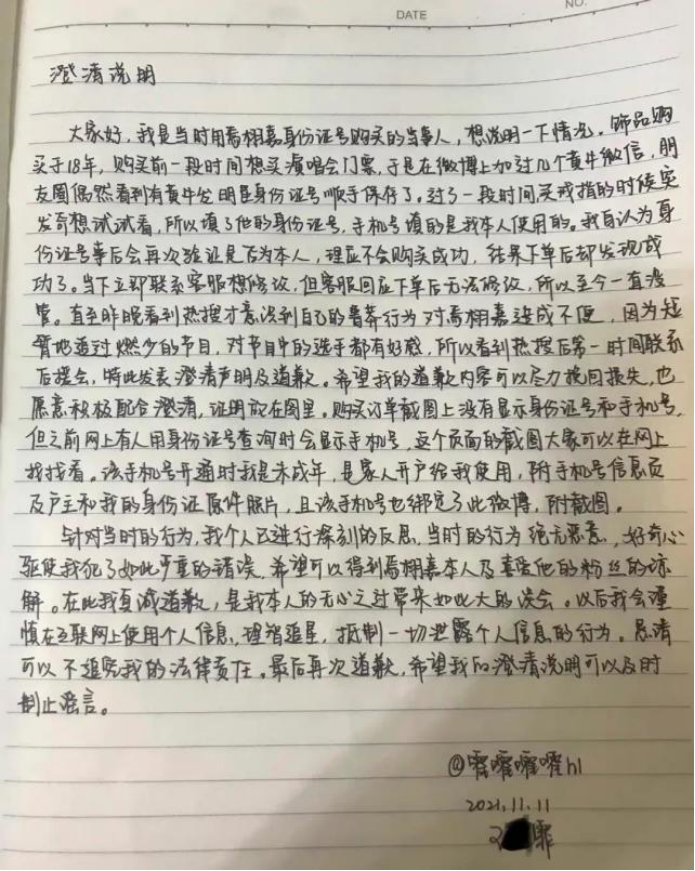 DATE
NO.
澄清说明
大家好，我是当时用焉栩嘉身份证号购买的当事人，想说明一下情况。饰品购
买于18年，购买前一段时间想买演唱会门票，于是在微博上加过几个黄牛微信，朋
友圈偶然看到有黄牛发明星身份证号顺手保存了。过了一段时间，买戒指的时候突
发奇想试试看，所以填了他的身份证号，手机号填的是我本人使用的。我自认为身
份证号事后会再次验证是否为本人，理应不会购买成功，结果下单后却发现成
功了。当下立即联系客服想修改，但客服回应下单后无法修改，所以至今一直没
管。直至昨晚看到热搜才意识到自己的鲁莽行为对焉栩嘉造成不便，因为短
暂地追过燃少的节目，对节目中的选手都有好感，所以看到热搜后第一时间联系
后援会，特此发表澄清声明及道歉。希望我的道歉内容可以尽力挽回损失，也
愿意积极配合澄清，证明放在图里。购买订单截图上没有显示身份证号和手机号，
但之前网上有人用身份证号查询时会显示手机号，这个页面的截图大家可以在网上
找找看。该手机号开通时我是未成年，是家人开户给我使用，附手机号信息页
及户主和我的身份证原件照片，且该手机号也绑定了此微博，附截图。
针对当时的行为，我个人已进行深刻的反思，当时的行为绝无恶意，好奇心
驱使我犯了如此严重的错误，希望可以得到焉栩嘉本人及喜爱他的粉丝的谅
解。在此我真诚道歉，是我本人的无心之过带来如此大的误会。以后我会谨
慎在互联网上使用个人信息，理智追星，抵制一切泄露个人信息的行为。恳请
可以不追究我的法律责任。最后再次道歉，希望我的澄清说明可以及时
制止谣言。
@嚯嚯嚯嚯hl
2021.11.11